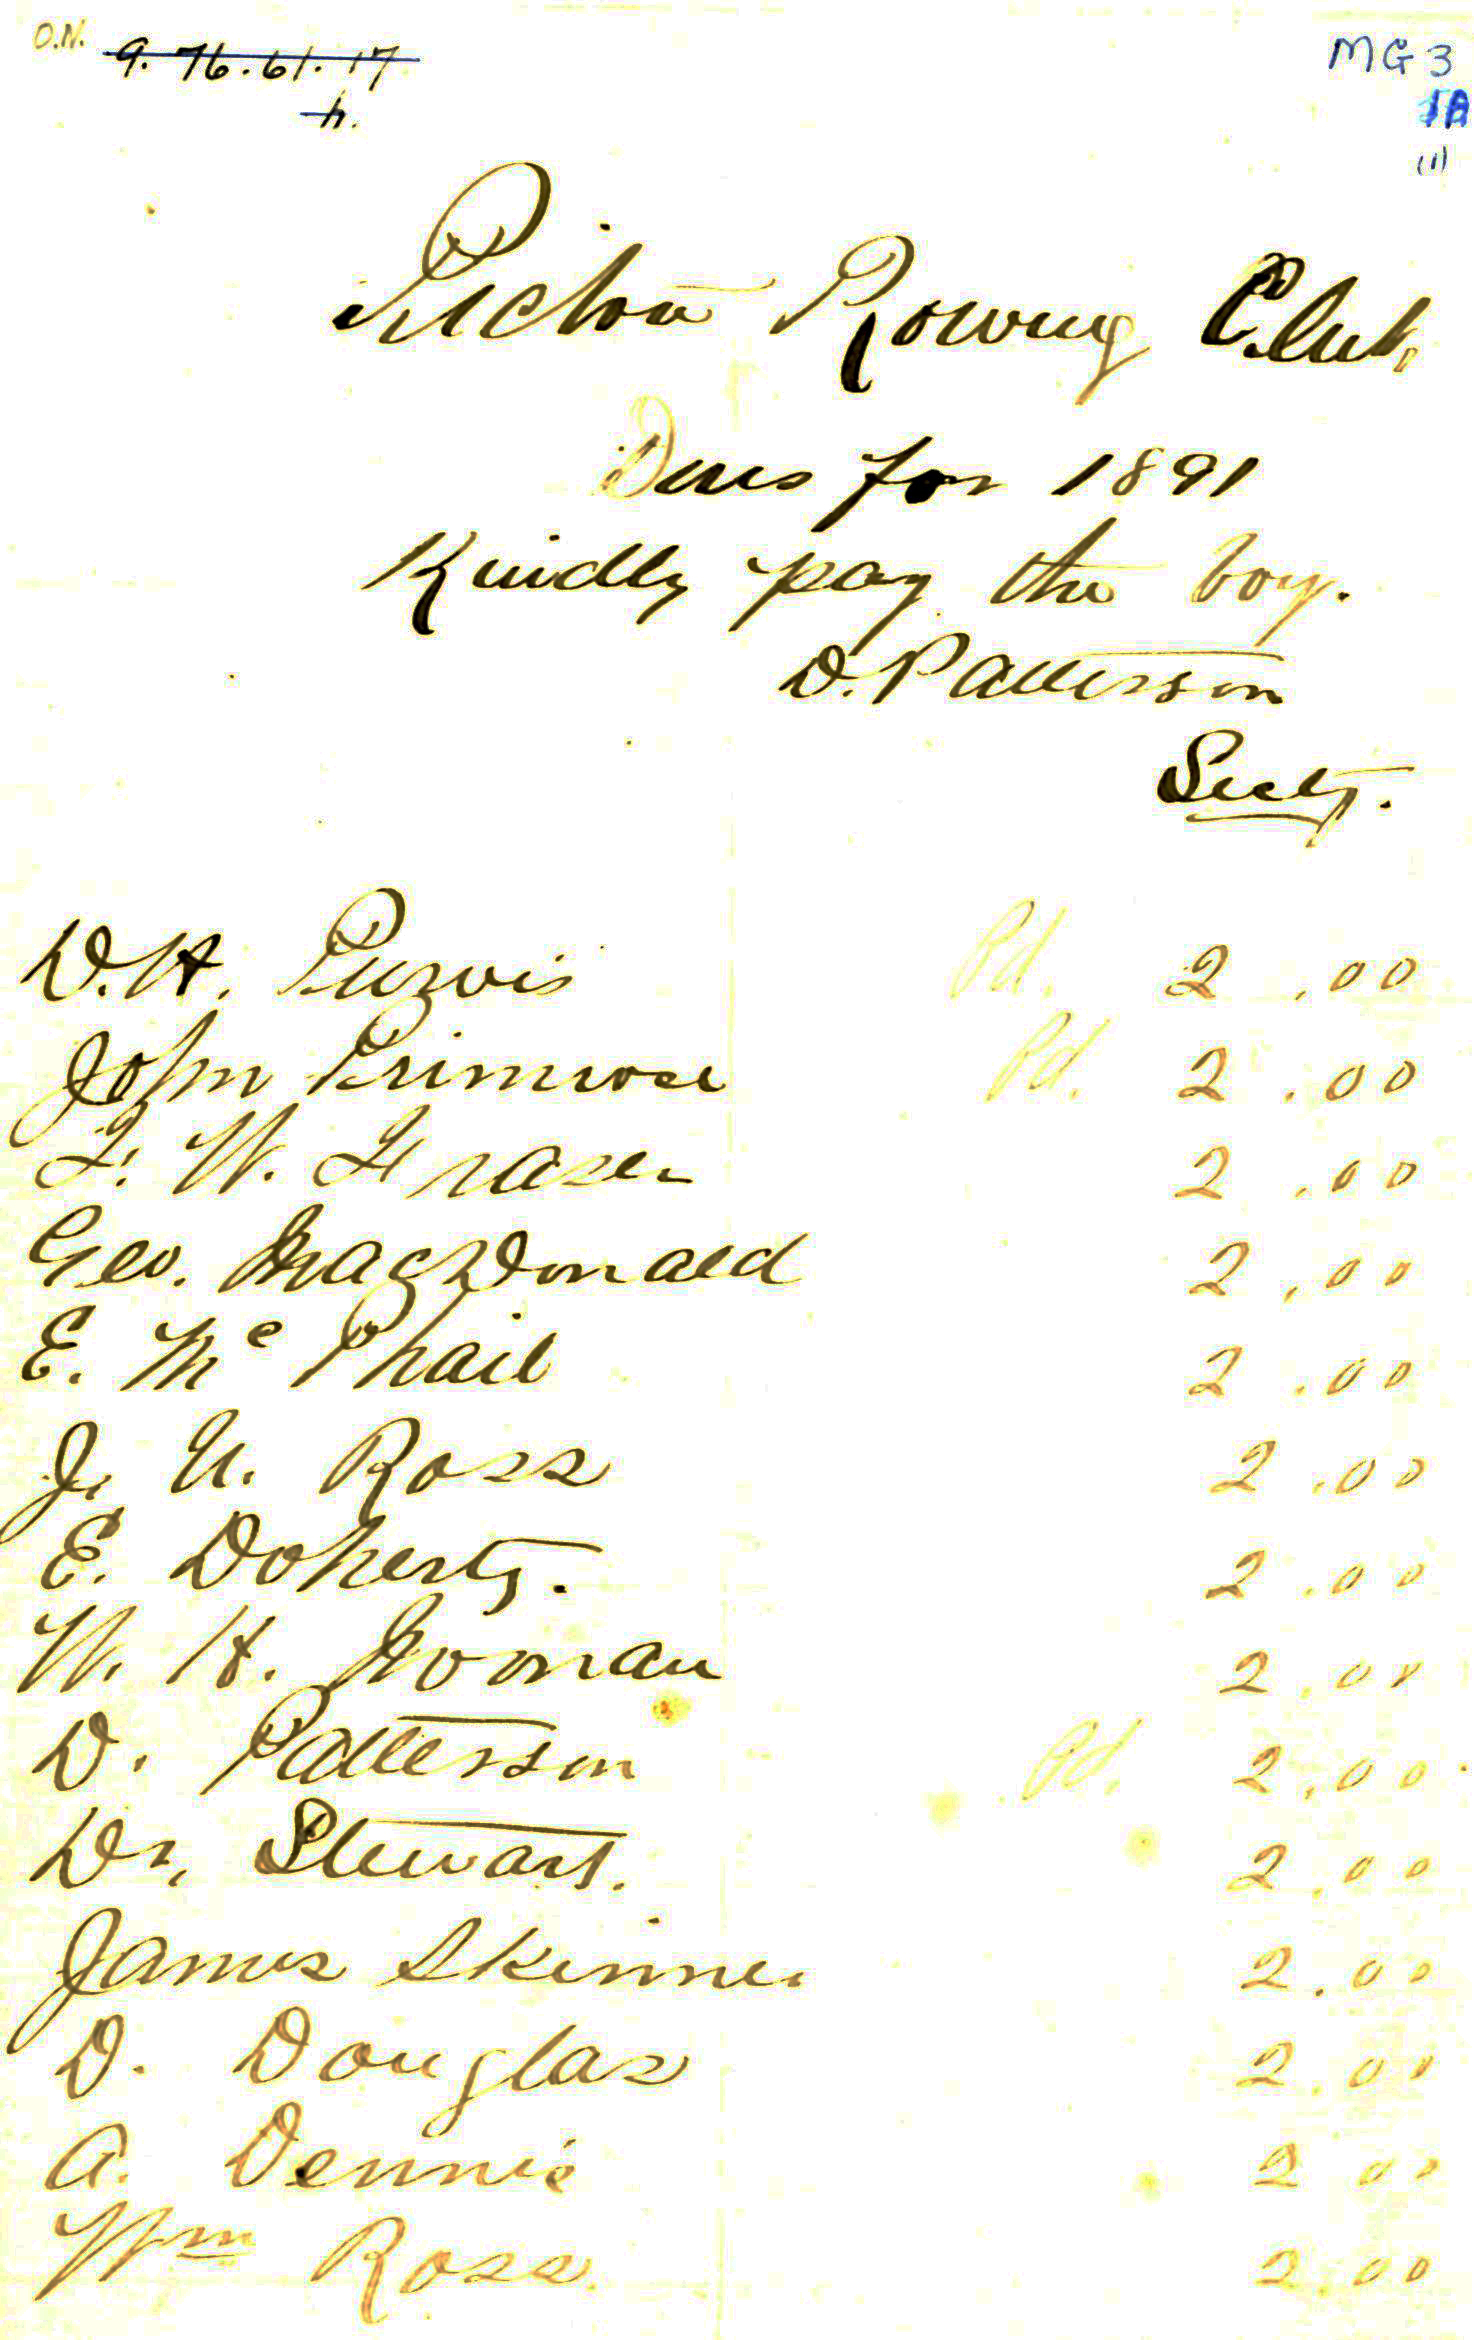 O.N. 9.76.61.17
h.
MG 3
1A
(1)
Pictou Rowing Club,
Dues for 1891
Kindly pay the boy.
D. Patterson
Secty.
D.H. Purvis Pd. 2.00
John Primrose Pd. 2.00
F. W. Fraser 2.00
Geo. MacDonald 2.00
E. Mc Phail 2.00
J. U. Ross 2.00
E. Doherty. 2.00
W. H. Noonan 2.00
D. Patterson Pd. 2.00
Dr. Stewart. 2.00
James Skinner 2.00
D. Douglas 2.00
A. Dennis 2.00
Wm Ross. 2.00